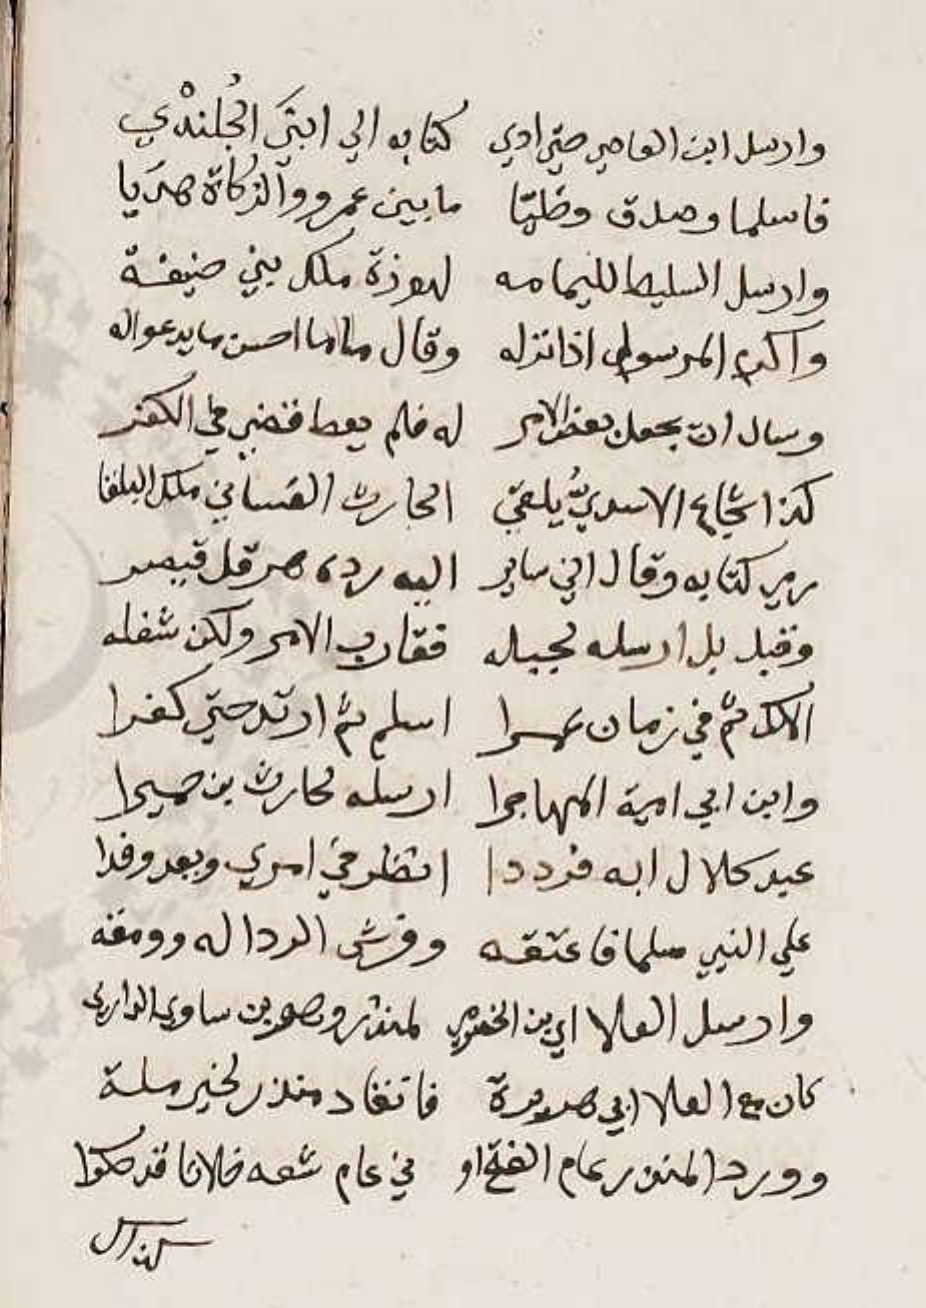 وارسل ابن العاصي حتي ادي كتابه الي ابني الجُلندْي
فاسلما وصدق وخليّا ما بين عمرو والزكاة هديا
وارسل السليط لليمامه لهوذة ملك بني حنيفة
واكرم المرسول اذ انزله وقال ما ما احسن ما يدعو اله
وسال ان يجعل بعض الامر له فلم يعط فقضي علي الكفر
كذا شجاع الاسديّ يلقي الحارث الغساني ملك البلقا
رمي كتابه وقال اني ساير اليه رده هرقل قيصر
وقيل بل ارسله لجبله فقارب الامر ولكن شغله
الملك ثم في زمان عمرا اسلم ثم ارتد حتي كفرا
وابن ابي امية المهاجرا ارسله لحارث بن حميرا
عبد كلال ابه فرددا انتظر في امري وبعد وفدا
علي النبي مسلما فاعتنقه وفرش الردا له وومقه
وارسل العلا اي بن الحضرمي لمنذر وهو بن ساوي الدارمي
كان مع العلا ابي هريرة فانقاد منذر لخير ملة
وورد المنذر عام الفتح او في عام تسعه خلافا قد حكوا
كذا